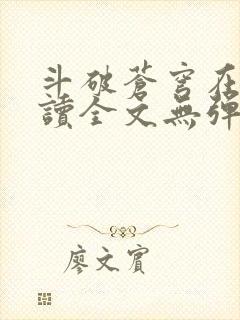 斗破蒼穹在
讀全文無彈
廖文賓